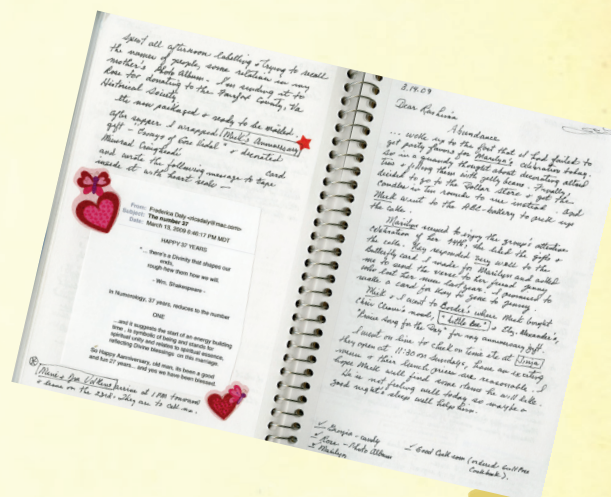 Spent all afternoon labelling + trying to recall
the names of people, some relatives in my
mother's photo album. I'm sending it to
Rose for donating to the Fairfax County, Va
Historical Society.
its now packaged + ready to be mailed.
After supper I wrapped Mick's Anniversary
gift - + decorated
card
and wrote the following message to tape
inside it with heart seals —
From: Frederica Daly <ricadaly@mac.com>
Subject: The number 37
Date: March 13, 2009 6:46:17 PM MDT
HAPPY 37 YEARS
"... there's a Divinity that shapes our
ends,
rough-hew them how we will.
- Wm. Shakespeare -
In Numerology, 37 years, reduces to the number
ONE
...and it suggests the start of an energy building
time , is symbolic of being and stands for
spiritual unity and relates to spiritual essence,
reflecting Divine blessings on this marriage.
So Happy Anniversary, old man, its been a good
and fun 37 years... and yes we have been blessed.
arrive at 1 PM tomorrow
+ leave on the 23rd. They are to call me.
3.14.09
Dear
Abundance
... woke up to the fact that I had failed to
get party favors for Marilyn's celebration today.
Lie in a groundy thought about decorating
+ filling them with jelly beans. Finally
decided to go to the Dollar Store + get the
candles in two minutes to use instead. and
Mick went to the ABC-bakery to pick up
the cake.
Marilyn seemed to enjoy the group's attention
celebration of her 79th, she liked the gifts +
the cake. They responded very well to the
butterfly card I made for Marilyn and asked
me to send the verse to her friend Jenny
who lost her mom last year. I promised to
make a card for to give to Jenny.
Mick + I went to Borders where Mick bought
Chris Cleave's novel, "Little Bee" + Eliz. Alexander's,
"Praise Song for the Day" for my anniversary gift.
I went on line to check on lunch etc at
they open at 11:30 on Sundays, have an exciting
menu + their lunch prices are reasonable. I
hope Mick will find some items he will like.
He is not feeling well today so maybe a
good night's sleep will help him.
- candy
Rose - Photo Album
Marilyn
Good Cook.com (ordered
Cookbook).